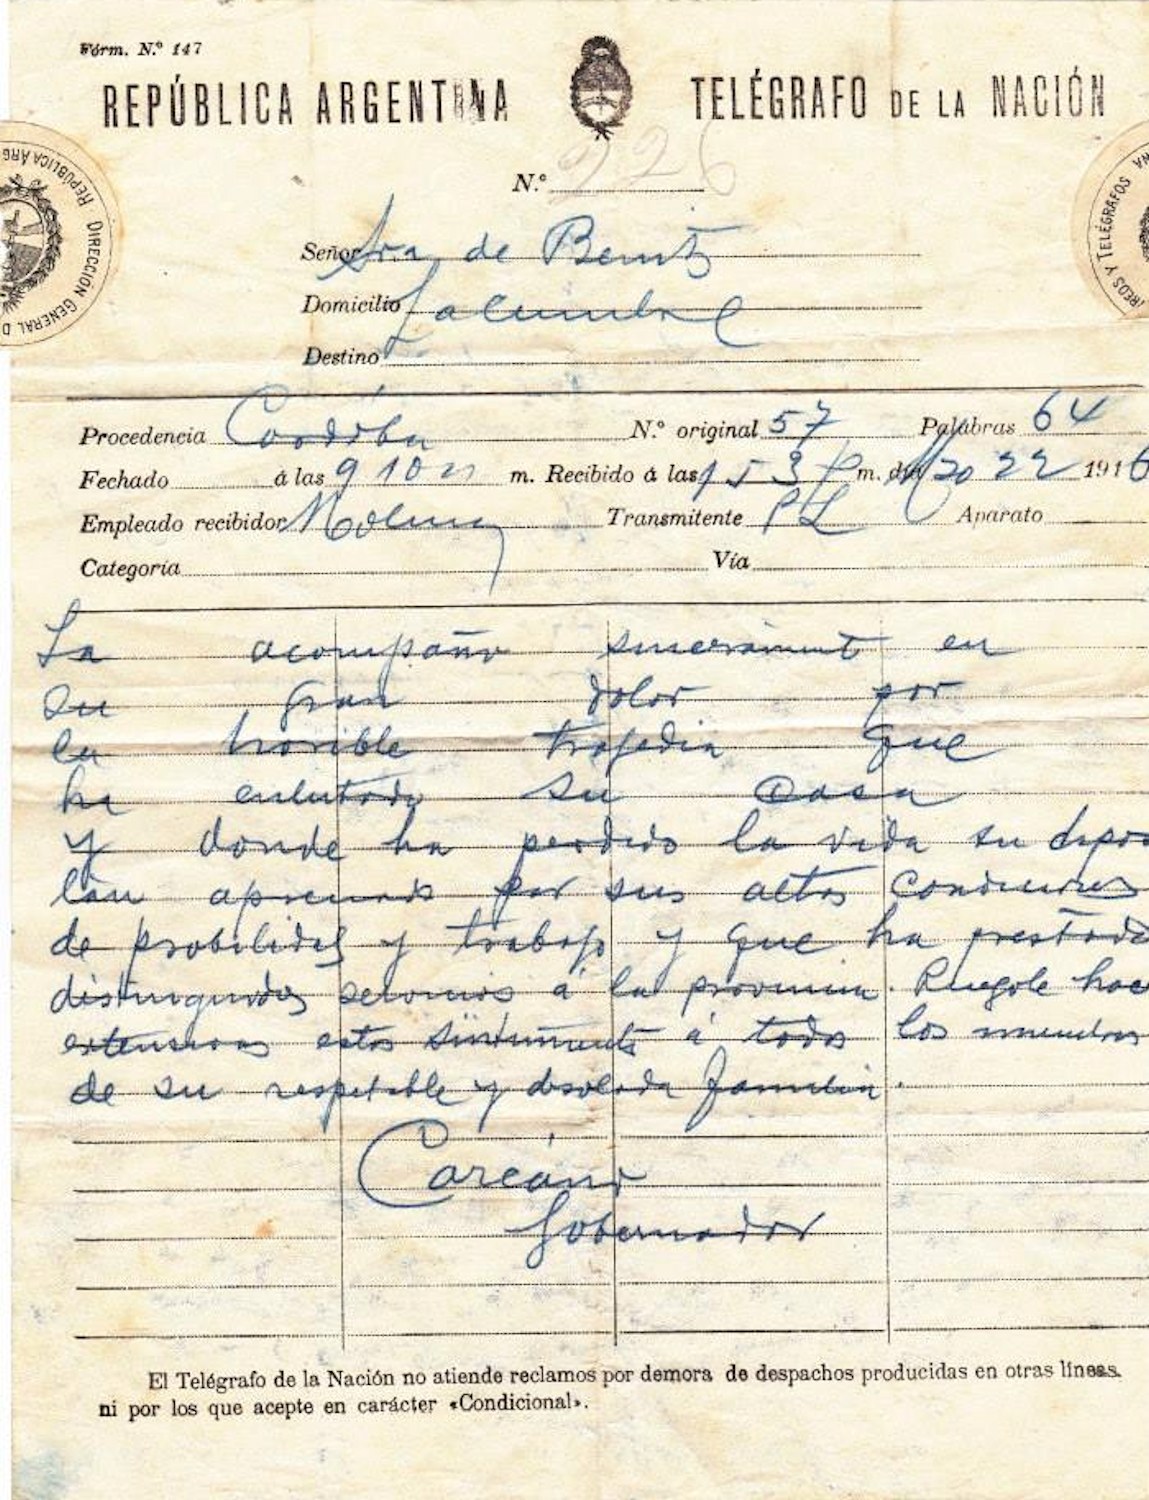 Fórm. N.º 147
REPÚBLICA ARGENTINA TELÉGRAFO DE LA NACIÓN
N.º 226
Señor Sra de Benitz
Domicilio La Cumbre
Destino
Procedencia Córdoba N.º original 57 Palabras 64
Fechado á las 9 10 m. Recibido á las 1537 m. día 22 1916
Empleado recibidor Molina Transmitente PL Aparato
Categoría Vía
La acompaño sinceramente en
su gran dolor por
la horrible tragedia que
ha enlutado su casa
y donde ha perdido la vida su
apreciado por sus altas condiciones
de probilidad y trabajo y que ha prestado
distinguidos servicios á la provincia. Ruegole hace
extensivos estos sentimientos á todos los miembros
de su respetable y desolada familia.
Carcáno
Gobernador
El Telégrafo de la Nación no atiende reclamos por demora de despachos producidas en otras líneas.
ni por los que acepte en carácter «Condicional».
DIRECCION GENERAL D
REPÚBLICA ARG
REOS Y TELÉGRAFOS